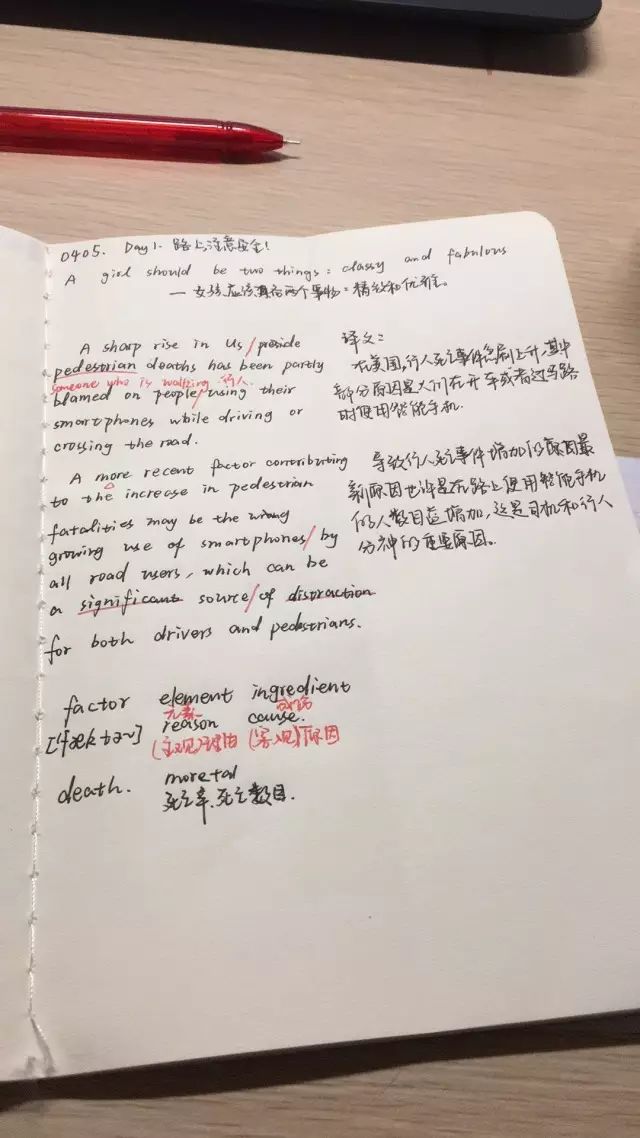 0405. Day1. 路上注意安全!
A girl should be two things: classy and fabulous
— 女孩应该具有两个事物:精致和优雅。
A sharp rise in US/
pedestrian deaths has been partly
someone who is walking 行人.
blamed on people/using their
smartphones while driving or
crossing the road.
A more recent factor contributing
to the increase in pedestrian
fatalities may be the wrong
growing use of smartphones/by
all road users, which can be
a significant source/of distraction
for both drivers and pedestrians.
译文:
在美国,行人死亡事件急剧上升,其中
部分原因是人们在开车或者过马路
时使用智能手机.
导致行人死亡事件增加的原因最
新原因也许是在路上使用智能手机
的人数日益增加,这是司机和行人
分神的重要原因。
factor element ingredient
元素
['fæktər] reason cause.
(主观)理由 (客观)原因
death. moretal
死亡率.死亡数目.